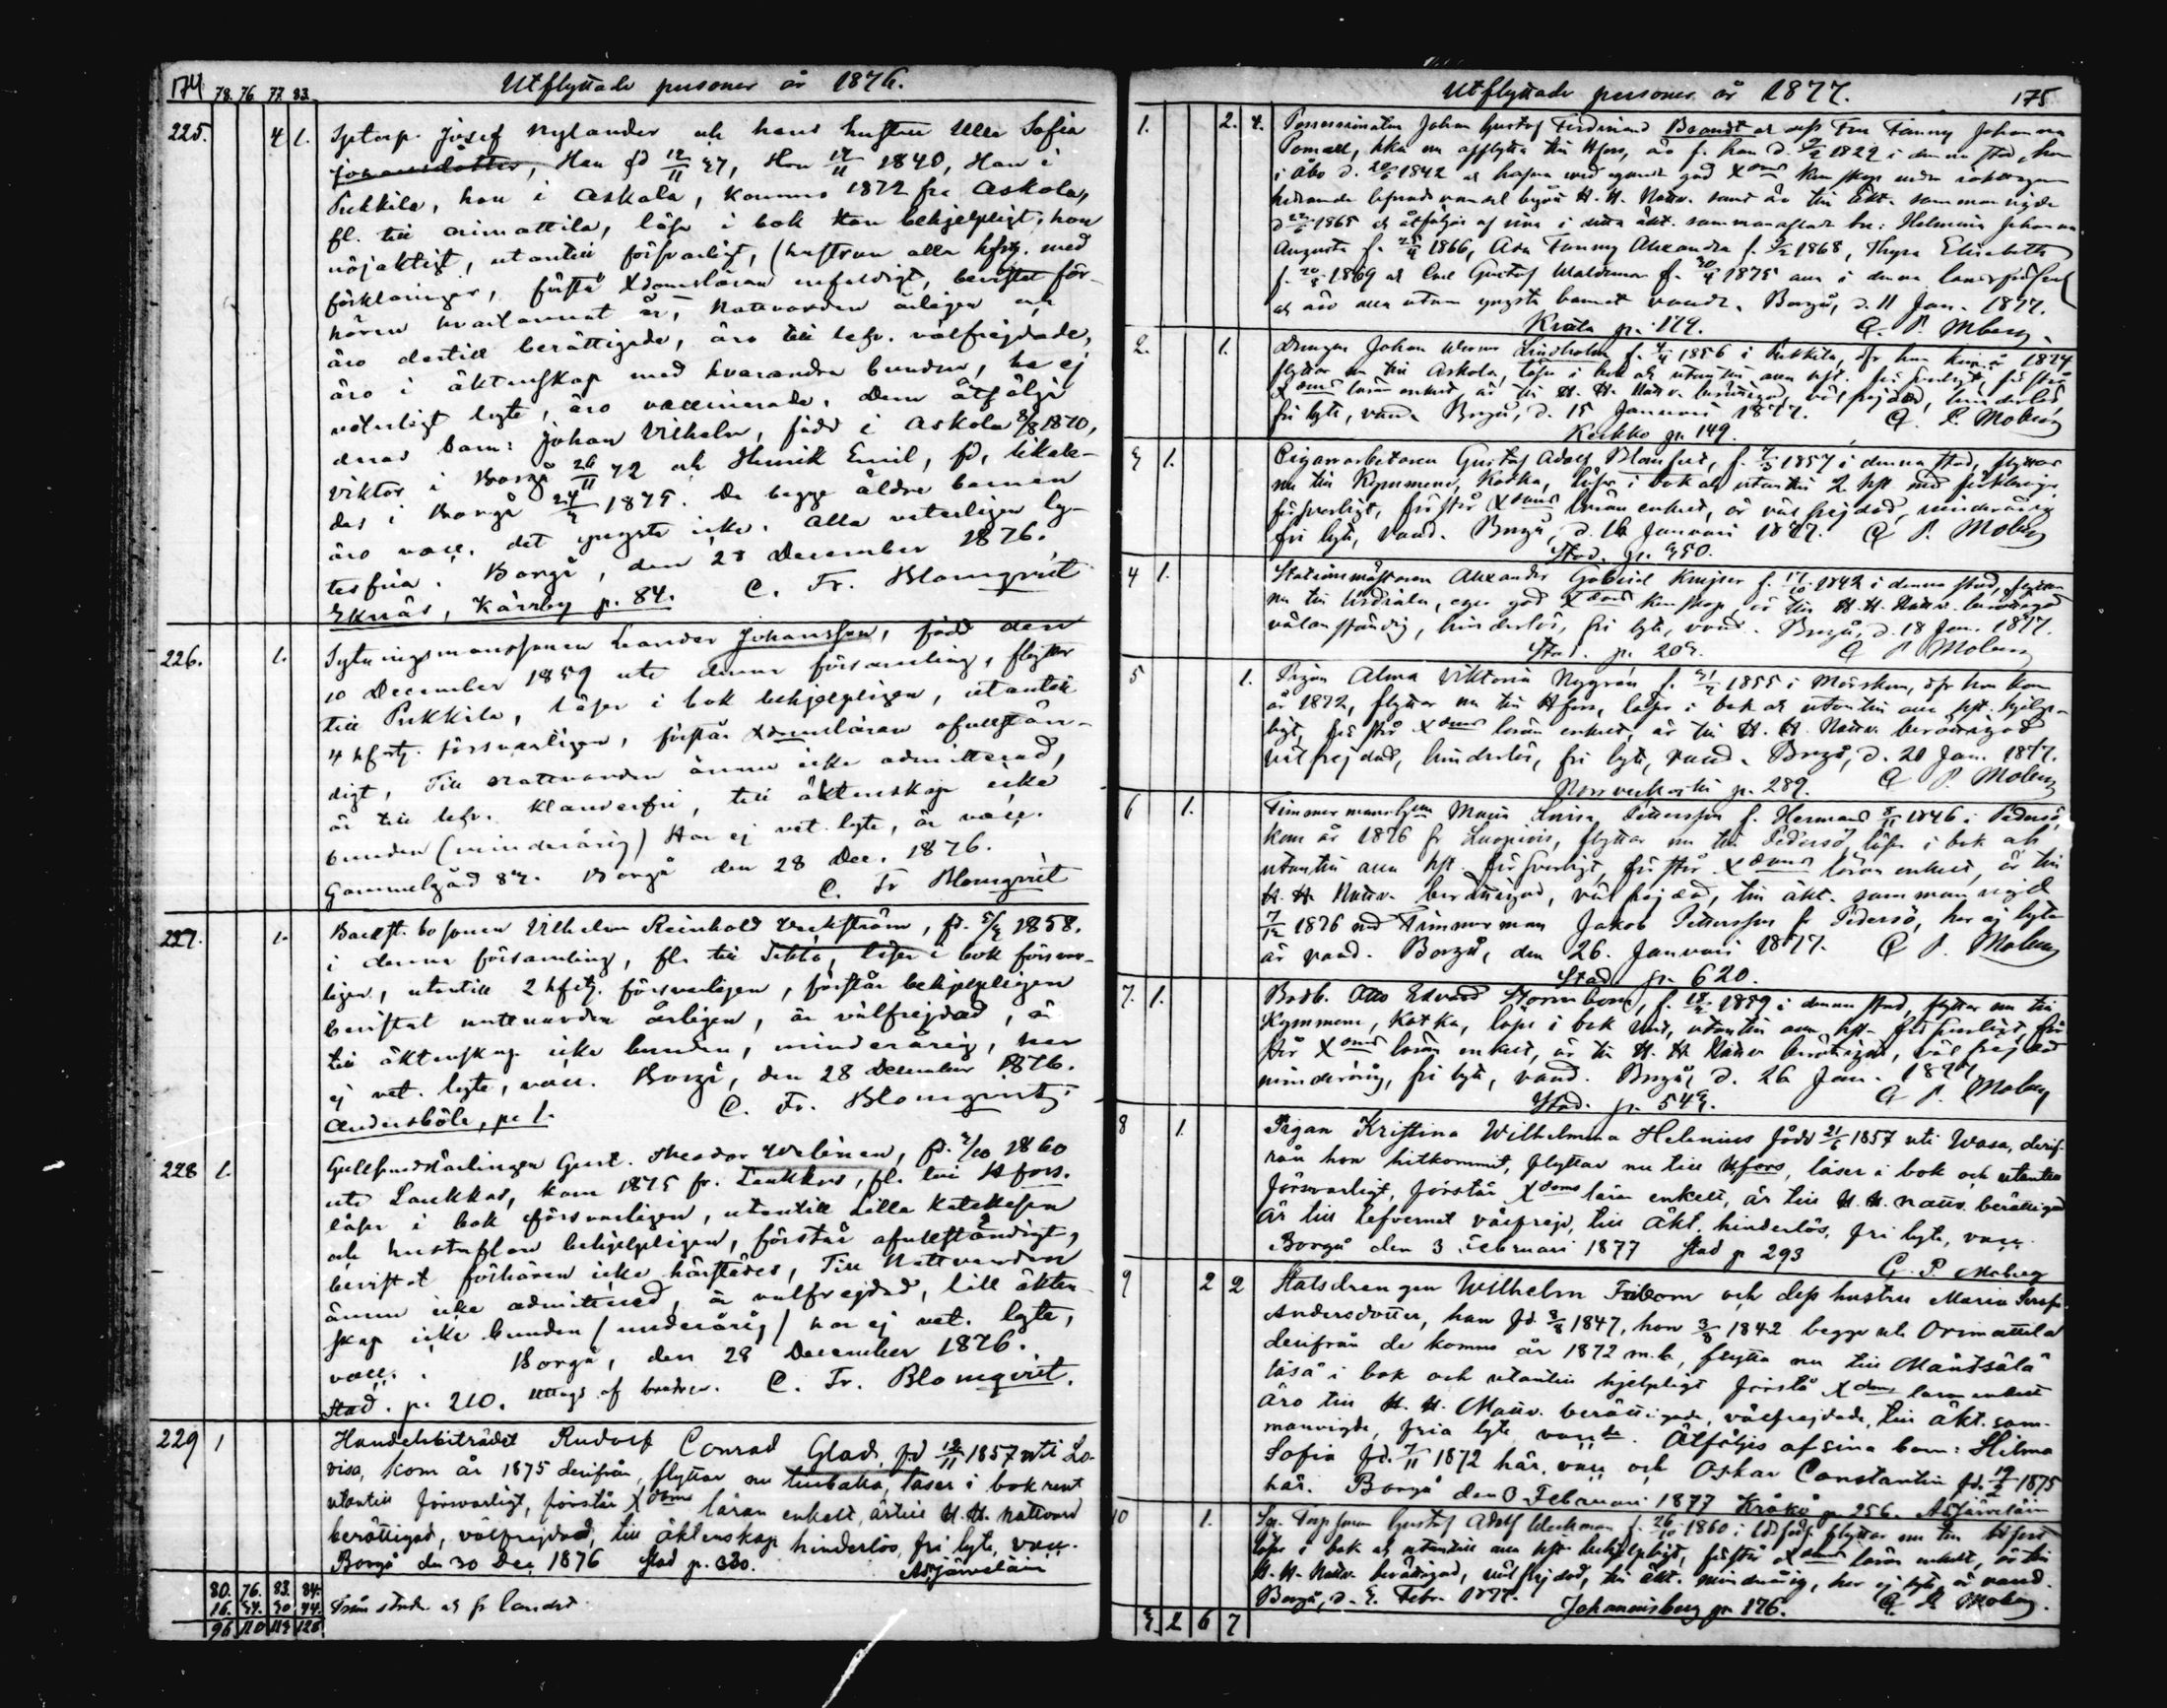 174 78. 76. 77. 83. Utflyttade personer år 1876.
225. 4 1. Sytorp. Josef Nylander och hans hustru Ulla Sofia
Johansdotter, Han fd 12/11 37, Hon 17/11 1840, Han i
Pukkila, hon i Askola, komna 1872 frå Askola,
fl. till Orimattila, läsa i bok han behjelpligt, hon
nöjaktigt, utantill försvarligt, (hustrun alla hfstg. med
förklaringar, förstå Xdomsläran enfaldigt, bevistat för-
hören hvartannat år, Nattvarden årligen och
äro dertill berättigade, äro till lefv. välfrejdade,
äro i äktenskap med hvarandra bundna, ha ej
veterligt lyte, äro vaccinerade. Dem åtfölja
deras barn: Johan Vilhelm, född i Askola 8/8 1870,
Viktor i Borgå 26/11 72 och Henrik Emil, fd. likale-
des i Borgå 1875. De begge äldre barnen
äro vacc. det yngsta icke. Alla veterligen ly-
tesfria. Borgå, den 28 December 1876.
Eknäs, Kärrby p. 84. C. Fr. Blomqvist
226. 1. Sytningsmanssonen Leander Johansson, född den
10 December 1859 uti denna församling, flyttar
till Pukkila, läser i bok behjelpligen, utantill
4 hfstg. försvarligen, förstår Xdomsläran ofullstän-
digt, Till Nattvarden ännu icke admitterad,
är till lefv. klanderfri, till äktenskap icke
bunden (minderårig) Har ej vet. lyte, är vacc.
Gammelgård 87. Borgå den 28 Dec. 1876.
C. Fr Blomqvist
227. 1. Backst. bosonen Vilhelm Reinhold Veckström, fd. 1858.
i denna församling, fl. till läser i bok försvar-
ligen, utantill 2 hfstg. försvarligen, förstår behjelpligen
bevistat nattvarden årligen, är välfrejdad, är
till äktenskap icke bunden, minderårig, har
ej vet. lyte, vacc. Borgå, den 28 December 1876.
Andersböle, p. 1. C. Fr. Blomqvist
228 1. Gust. Theodor Welinen, fd. 2/10 1860
uti Laukkas, kom 1875 fr. Laukkas, fl. till Hfors.
läser i bok försvarligen, utantill Lilla Katekesen
och hustaflan behjelpligen, förstår ofullständigt,
bevistat förhören icke härstädes, Till Nattvarden
ännu icke admitterad, är välfrejdad, till äkten-
skap icke bunden (minderårig) har ej vet. lyte,
vacc. Borgå, den 28 December 1876.
Stad. p. 210. uttagit af brodren. C. Fr. Blomqvist.
229 1 Handelsbiträdet Rudolf Conrad Glad, fd 1857 uti Lo-
visa, kom år 1875 derifrån, flyttar nu tillbaka, läser i bok rent
utantill försvarligt, förstår Xdoms läran enkelt, är till H. H. nattvard
berättigad, välfrejdad, till äktenskap hinderlös, fri lyte, vacc.
Borgå den 30 Dec 1876 Stad p. 330. Järveläin
80. 76. 83. 84.
16. 34. 30 44. Från stad. och fr landet
96 110 113 128
Utflyttade personer år 1877. 175
1. 2. 4. Johan Gustaf Ferdinand Brandt och dess Fru Fanny Johanna
hka nu afflytta till Hfors, äro f. han d. 1829 i denna stad, hon
i Åbo d. 1842 och hafva god Xdoms kunskap
H. H. Nattv. samt äro till äkt. samman vigde
d 1865 och åtföljas af sina i detta äkt. sammanaflade bn: Helmina Johanna
Augusta f. 1866, Ada Fanny Alexandra f. 1868, Thyra Elisabeth
f. 1869 och Carl Gustaf Waldemar f. 1875 alla i denna landsförsaml
och äro alla utom yngsta barnet vaccd. Borgå, d. 11 Jan. 1877.
p. 179. G. P. Moberg
2. 1. Drängen Johan Werner Lindholm f. 1856 i Pukkila, dfr han kom år 1874
flyttar nu till Askola, läser i bok och utantill alla hst. försvarligt, förstår
Xdoms läran enkelt, är till H. H. Nattv. berättigad, välfrejdad, hinderlös,
fri lyte, vaccd. Borgå, d. 15 Januari 1877. G. P. Moberg
Kerkko p. 149.
3 1. Cigarrarbetaren Gustaf Adolf Blomfelt, f. 1857 i denna stad, flyttar
nu till Kymmene, Kotka, läser i bok och utantill 2 hst med förklaringar
försvarligt, förstår Xdoms läran enkelt, är välfrejdad, minderårig
fri lyte, vaccd. Borgå, d. 16 Januari 1877. G. P. Moberg
Stad. p. 350.
4 1. Stationsmästaren Alexander Gabriel f. 1842 i denna stad, flyttar
nu till Urdiala, eger god Xdoms kunskap, är till H. H. Nattv. berättigad
välanständig, hinderlös, fri lyte, vaccd. Borgå, d. 18 Jan. 1877.
Stad. p. 203. G. P. Moberg
5 1. Pigan Alma Viktoria Nygrén f. 1855 i Mörskom, dfr hon kom
år 1872, flyttar nu till Hfors, läser i bok och utantill alla hst. hjelp-
ligt, förstår Xdoms läran enkelt, är till H. H. Nattv. berättigad
välfrejdad, hinderlös, fri lyte, vaccd. Borgå, d. 20 Jan. 1877.
Norrveckoski p. 289. G. P. Moberg
6 1. Maria Lovisa Pettersson f. 1846 i Pedersö,
kom år 1876 fr flyttar nu till Pedersö, läser i bok och
utantill alla hst. försvarligt, förstår Xdoms läran enkelt, är till
H. H. Nattv. berättigad, välfrejdad, till äkt. samman vigd
7/12 1876 med Timmerman Jakob Pettersson fr Pedersö, har ej lyte
är vaccd. Borgå, den 26. Januari 1877. G. P. Moberg
Stad p. 620.
7. 1. Bodb. Otto Edvard Stormbom, f. 1859 i denna stad, flyttar nu till
Kymmene, Kotka, läser i bok utantill alla hst. försvarligt, för-
står Xdoms läran enkelt, är till H. H. Nattv berättigad, välfrejdad
minderårig, fri lyte, vaccd. Borgå, d. 26 Jan. 1877
Stad. p. 543. G. P. Moberg
8 1. Pigan Kristina Wilhelmina Helenius född 21/6 1857 uti Wasa, derif-
rån hon hitkommit, flyttar nu till Hfors, läser i bok och utantill
försvarligt, förstår Xdoms läran enkelt, är till H. H. nattv. berättigad
är till lefvernet välfrejd, till äkt. hinderlös, fri lyte, vacc.
Borgå den 3 Februari 1877 Stad p 293 G. P. Moberg
9 2 2 Statsdrengen Wilhelm och dess hustru Maria Seraf.
Andersdotter, han fd 1847, hon 3/8 1842 begge uti Orimattila
derifrån de komna år 1872 m. b., flytta nu till Mäntsälä
läsa i bok och utantill hjelpligt förstå Xdoms läran enkelt
äro till H. H. Nattv. berättigade, välfrejdade, till äkt. sam-
manvigde, fria lyte vaccde. Åtföljes af sina barn: Hilma
Sofia fd. 7/11 1872 här, vacc och Oskar Constantin fd. 19/2 1875
här. Borgå den 3 Februari 1877 Kråkö p 256. Järveläin
10 1. Gustaf Adolf Weckman f. 1860 i flyttar nu till Hfors
läser i bok och utantill alla hst behjelpligt, förstår Xdoms läran enkelt, är till
H. H. Nattv. berättigad, välfrejdad, till äkt. minderårig, har ej lyte, är vaccd.
Borgå, d. 3. Febr. 1877. Johannisberg p. 176. G. P. Moberg.
3 2 6 7